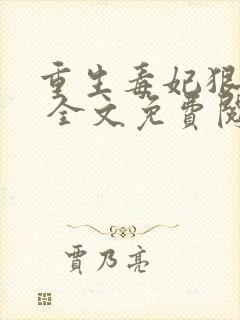 重生毒妃狠
全文免費閱
賈乃亮